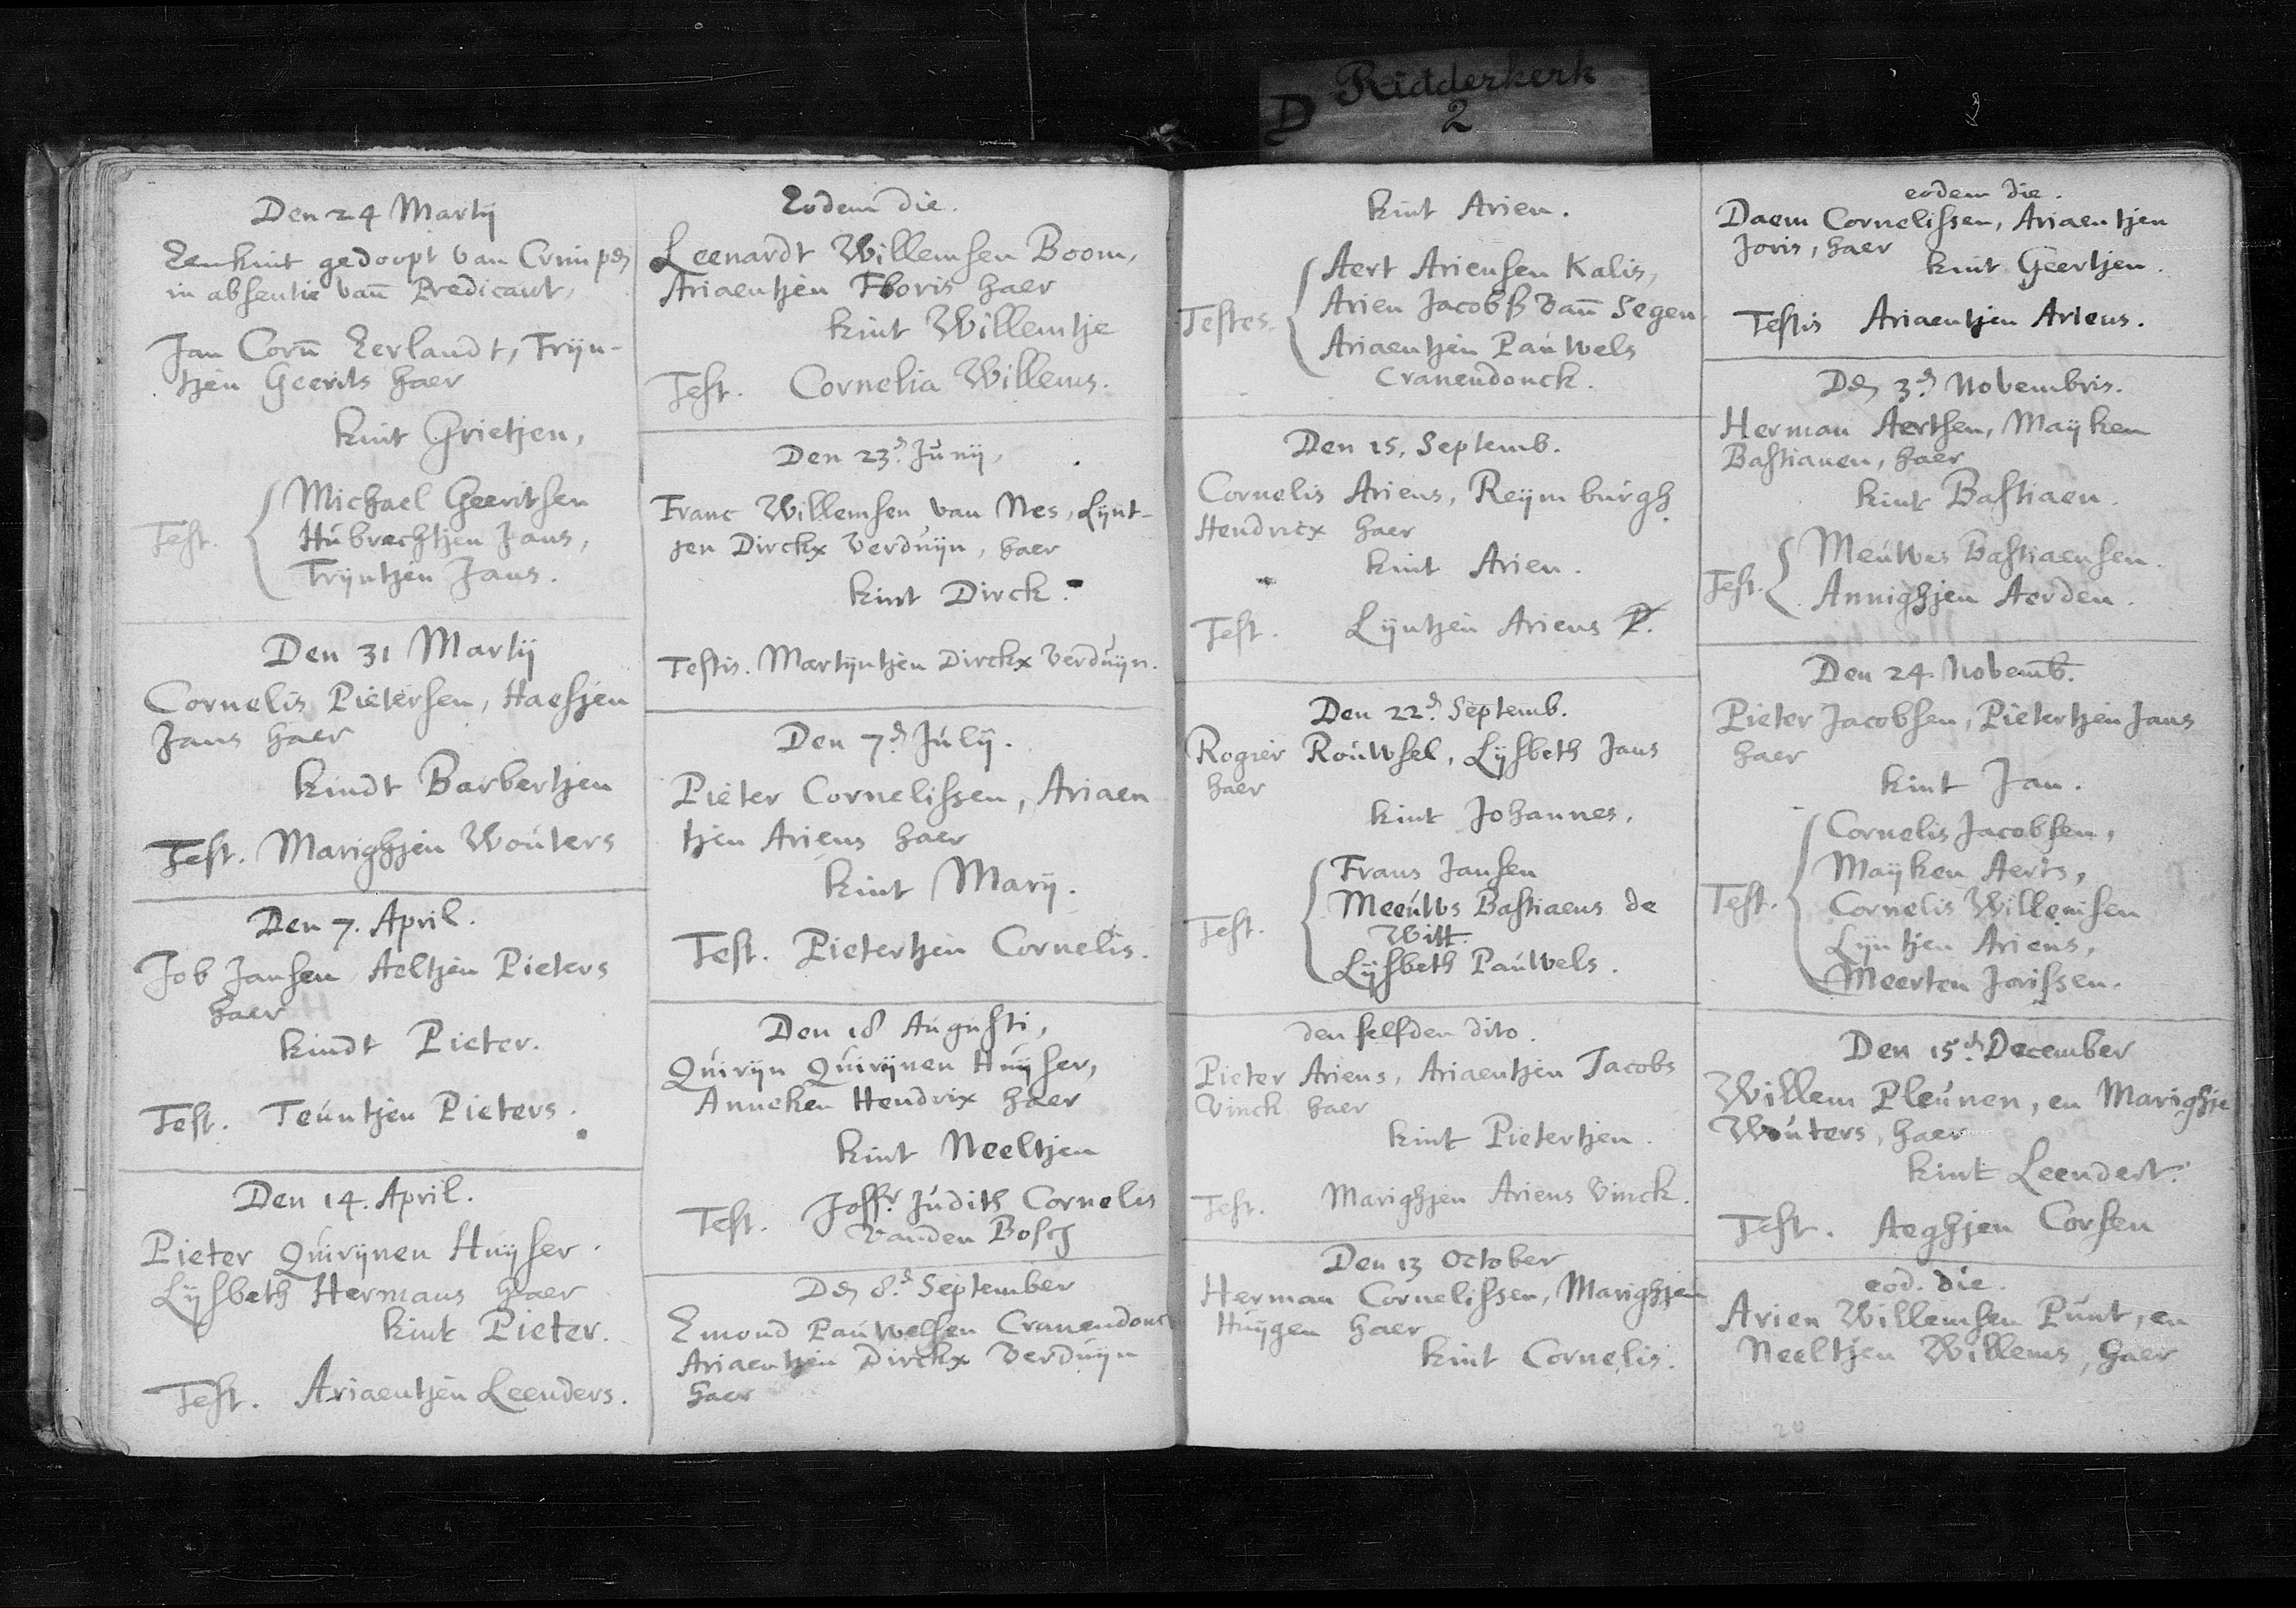 D Ridderkerk
2
Den 24 Martij
Een kint gedoopt van Crimpen
in absentie vañ Predicant,
Jan Corñ Eerlandt, Trijn-
tjen Geerits haer
kint Grietjen,
Test. Michael Geeritsen
Hubrechtjen Jans,
Trijntjen Jans.
Den 31 Martij
Cornelis Pietersen, Haesjen
Jans haer
kindt Barbertjen
Test. Marighjen Wouters
Den 7. April.
Job Jansen Aeltjen Pieters
haer
kindt Pieter.
Test. Teuntjen Pieters.
Den 14. April.
Pieter Quirijnen Huijser.
Lijsbeth Hermans haer
kint Pieter.
Test. Ariaentjen Leenders.
Eodem die.
Leenardt Willemsen Boom,
Ariaentjen Floris haer
kint Willemtje
Test. Cornelia Willems.
Den 23.n Junij,
Franc Willemsen van Nes, Lijnt-
jen Dirckx Verduijn, haer
kint Dirck.
Testis. Martijntjen Dirckx Verduijn.
Den 7.n Julij.
Pieter Cornelissen, Ariaen
tjen Ariens haer
kint Marij.
Test. Pietertjen Cornelis.
Den 18 Augusti,
Quirijn Quirijnen Huijser,
Anneken Hendrix haer
kint Neeltjen
Test. Joffr. Judith Cornelis
Vanden Bosch
Den 8.n September
Emond Pauwelsen Cranendonc
Ariaentjen Dirckx Verduijn
haer
kint Arien.
Testes. Aert Ariensen Kalis,
Arien Jacobß vañ Segen
Ariaentjen Pauwels
Cranendonck.
Den 15. Septemb.
Cornelis Ariens, Reijmburgh
Hendricx haer
kint Arien.
Test. Lijntjen Ariens P.
Den 22.n Septemb.
Rogier Rouwsel, Lijsbeth Jans
haer
kint Johannes.
Test. Frans Jansen
Meeuws Bastiaens de
Witt.
Lijsbeth Pauwels.
den selfden dito.
Pieter Ariens, Ariaentjen Jacobs
Vinck haer
kint Pietertjen.
Test. Marighjen Ariens Vinck.
Den 13 October
Herman Cornelissen, Marighjen
Huijgen haer
kint Cornelis.
eodem die.
Daem Cornelissen, Ariaentjen
Joris, haer
kint Geertjen.
Testis Ariaentjen Ariens.
Den 3.n Novembris.
Herman Aertsen, Maijken
Bastianen, haer
kint Bastiaen.
Test. Meeuwes Bastiaensen.
Annighjen Aerden.
Den 24. Novemb.
Pieter Jacobsen, Pietertjen Jans
haer
kint Jan.
Test. Cornelis Jacobsen,
Maijken Aerts,
Cornelis Willemsen
Lijntjen Ariens,
Meerten Jorissen.
Den 15.n December
Willem Pleunen, en Marighje
Wouters, haer
kint Leendert.
Test. Aeghjen Corsen
eod. die.
Arien Willemsen Punt, en
Neeltjen Willems, haer
20